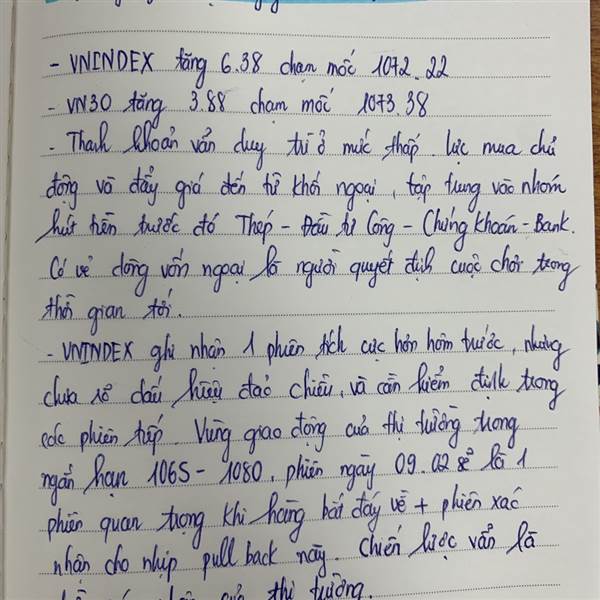 - VNINDEX tăng 6.38 chạm mốc 1072.22
- VN30 tăng 3.88 chạm mốc 1073.38
- Thanh khoản vẫn duy trì ở mức thấp. lực mua chủ
động và đẩy giá đến từ khối ngoại, tập trung vào nhóm
hút tiền trước đó Thép - Đầu tư Công - Chứng khoán - Bank.
Có vẻ dòng vốn ngoại là người quyết định cuộc chơi trong
thời gian tới.
- VNINDEX ghi nhận 1 phiên tích cực hơn hôm trước, nhưng
chưa rõ dấu hiệu đảo chiều, và cần kiểm định trong
các phiên tiếp. Vùng giao động của thị trường trong
ngắn hạn 1065 - 1080, phiên ngày 09.02 sẽ là 1
phiên quan trọng khi hàng bắt đáy về + phiên xác
nhận cho nhịp pull back này. Chiến lược vẫn là
của thị trường.